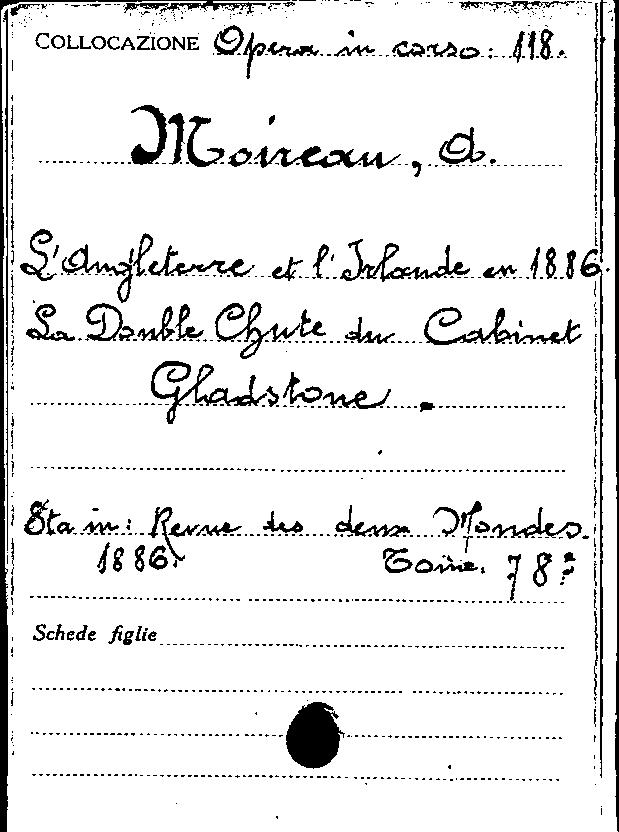 COLLOCAZIONE Opera in corso: 118.
Moireau, A.
L'Angleterre et l'Irlande en 1886.
La Double Chute du Cabinet
Gladstone.
Sta in: Revue des deux Mondes.
1886. Tome. 78º
Schede figlie